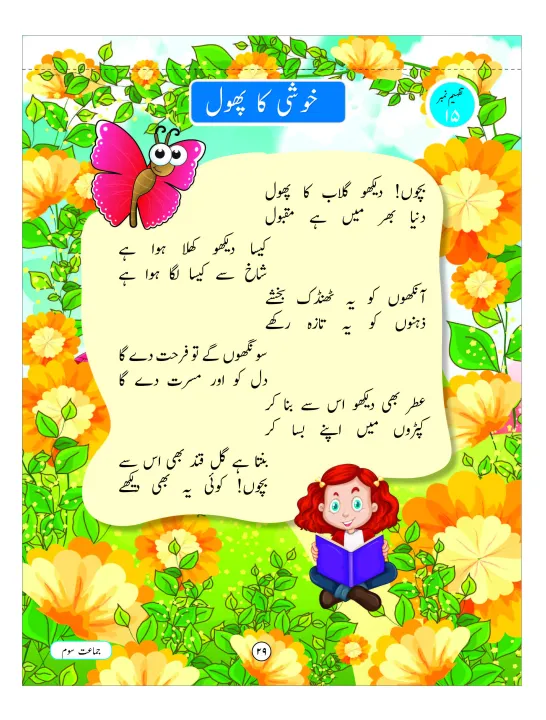 خوشی کا پھول
تقسیم نمبر
۱۵
بچوں! دیکھو گلاب کا پھول
دنیا بھر میں ہے مقبول
کیسا دیکھو کھلا ہوا ہے
شاخ سے کیسا لگا ہوا ہے
آنکھوں کو یہ ٹھنڈک بخشے
ذہنوں کو یہ تازہ رکھے
سونگھوں گے تو فرحت دے گا
دل کو اور مسرت دے گا
عطر بھی دیکھو اس سے بنا کر
کپڑوں میں اپنے بسا کر
بنتا ہے گل قند بھی اس سے
بچوں! کوئی یہ بھی دیکھے
جماعت سوم
۴۹